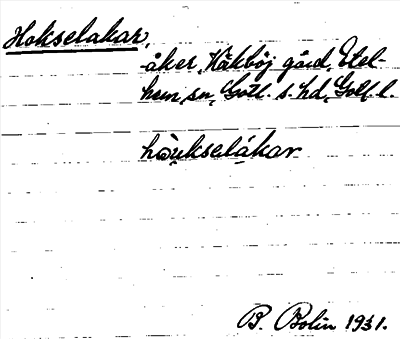 Hokselakar,
åker, Kåkböj gård, Etel-
hem sn, Gotl. s. hd, Gotl. l.
hò̤u̯kselákar
B. Bolin 1931.